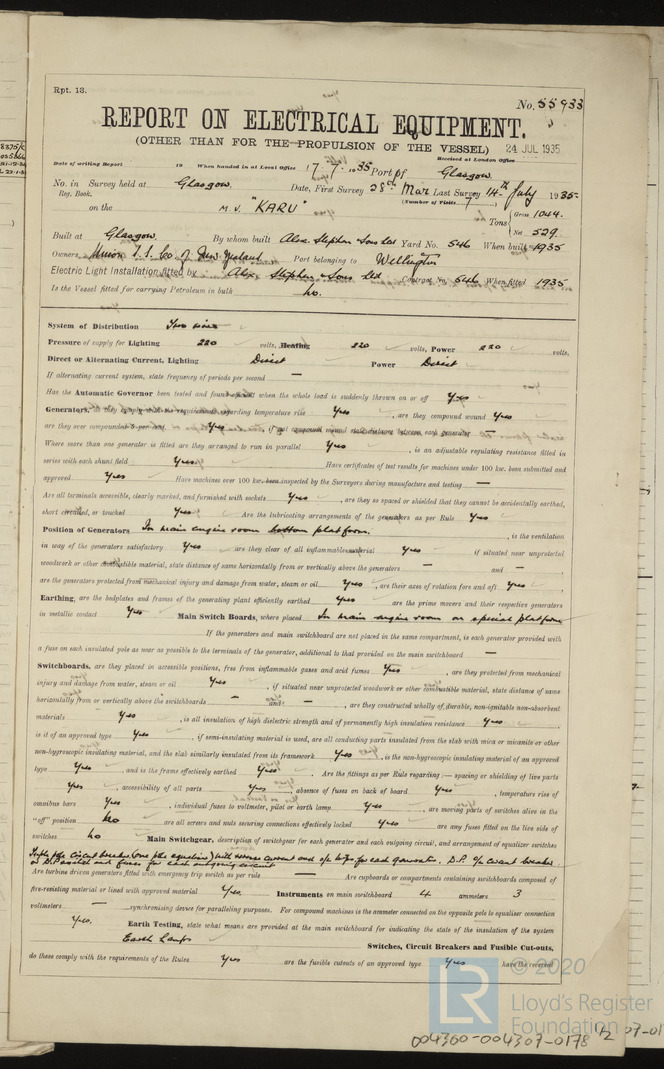 Rpt. 13.
No. 55933
REPORT ON ELECTRICAL EQUIPMENT.
(OTHER THAN FOR THE PROPULSION OF THE VESSEL) 24 JUL 1935
Date of writing Report 19 When handed in at Local Office 17-7-1935 Port of Glasgow Received at London Office
No. in Survey held at Glasgow. Date, First Survey 28th Mar Last Survey 14th July 1935
Reg. Book. (Number of Visits 7)
on the M.V. "KARU" Tons { Gross 1044. Net 529.
Built at Glasgow. By whom built Alex. Stephen & Sons Ltd Yard No. 546 When built 1935
Owners Union S.S. Co of New Zealand Port belonging to Wellington
Electric Light Installation fitted by Alex. Stephen & Sons Ltd Contract No. 546 When fitted 1935
Is the Vessel fitted for carrying Petroleum in bulk No.
System of Distribution Two wire
Pressure of supply for Lighting 220 volts, Heating 220 volts, Power 220 volts.
Direct or Alternating Current, Lighting Direct Power Direct
If alternating current system, state frequency of periods per second —
Has the Automatic Governor been tested and found when the whole load is suddenly thrown on or off Yes
Generators, regarding temperature rise Yes, are they compound wound Yes
are they over compounded 5 per cent. Yes, if not compound wound state distance between each generator —
Where more than one generator is fitted are they arranged to run in parallel Yes, is an adjustable regulating resistance fitted in
series with each shunt field Yes Have certificates of test results for machines under 100 kw. been submitted and
approved Yes Have machines over 100 kw. been inspected by the Surveyors during manufacture and testing —
Are all terminals accessible, clearly marked, and furnished with sockets Yes, are they so spaced or shielded that they cannot be accidentally earthed,
short circuited, or touched Yes Are the lubricating arrangements of the generators as per Rule Yes
Position of Generators In main engine room bottom platform., is the ventilation
in way of the generators satisfactory Yes are they clear of all inflammable material Yes if situated near unprotected
woodwork or other combustible material, state distance of same horizontally from or vertically above the generators — and —,
are the generators protected from mechanical injury and damage from water, steam or oil Yes, are their axes of rotation fore and aft Yes,
Earthing, are the bedplates and frames of the generating plant efficiently earthed Yes are the prime movers and their respective generators
in metallic contact Yes Main Switch Boards, where placed In main engine room on special platform
If the generators and main switchboard are not placed in the same compartment, is each generator provided with
a fuse on each insulated pole as near as possible to the terminals of the generator, additional to that provided on the main switchboard —
Switchboards, are they placed in accessible positions, free from inflammable gases and acid fumes Yes, are they protected from mechanical
injury and damage from water, steam or oil Yes, if situated near unprotected woodwork or other combustible material, state distance of same
horizontally from or vertically above the switchboards — and —, are they constructed wholly of durable, non-ignitable non-absorbent
materials Yes, is all insulation of high dielectric strength and of permanently high insulation resistance Yes,
is it of an approved type Yes, if semi-insulating material is used, are all conducting parts insulated from the slab with mica or micanite or other
non-hygroscopic insulating material, and the slab similarly insulated from its framework Yes, is the non-hygroscopic insulating material of an approved
type Yes, and is the frame effectively earthed Yes. Are the fittings as per Rule regarding:— spacing or shielding of live parts
Yes, accessibility of all parts Yes, absence of fuses on back of board Yes, temperature rise of
omnibus bars Yes, individual fuses to voltmeter, pilot or earth lamp Yes, are moving parts of switches alive in the
"off" position No are all screws and nuts securing connections effectively locked Yes are any fuses fitted on the live side of
switches No Main Switchgear, description of switchgear for each generator and each outgoing circuit, and arrangement of equalizer switches
Triple pole circuit breaker (one pole equalizer) with reverse current and o/c trips for each generator. D.P. o/c circuit breaker
or D.P. switch and fuses for each outgoing circuit
Are turbine driven generators fitted with emergency trip switch as per rule — Are cupboards or compartments containing switchboards composed of
fire-resisting material or lined with approved material Yes Instruments on main switchboard 4 ammeters 3
voltmeters — synchronising device for paralleling purposes. For compound machines is the ammeter connected on the opposite pole to equaliser connection
Yes. Earth Testing, state what means are provided at the main switchboard for indicating the state of the insulation of the system
Earth Lamps Switches, Circuit Breakers and Fusible Cut-outs,
do these comply with the requirements of the Rules Yes are the fusible cutouts of an approved type Yes have the reversed
© 2020
LR Lloyd's Register
Foundation
004300-004307-0178 1/2